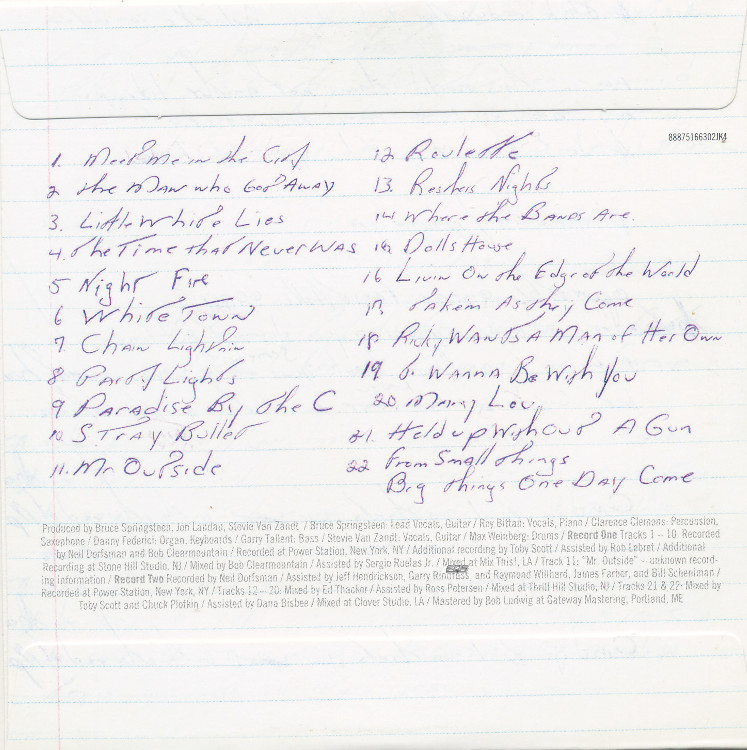 88875166302JK4
1. Meet Me in the City
2 the Man who Got Away
3. Little White Lies
4. the Time that Never Was
5 Night Fire
6 White Town
7. Chain Lightnin
8. Party Lights
9 Paradise By the C
10. Stray Bullet
11. Mr Outside
12 Roulette
13. Restless Nights
14 Where the Bands Are.
Dolls House
16 Livin On the Edge of the World
17. Takem As they Come
18 Ricky Wants A Man of Her Own
19 I Wanna Be With You
20 Mary Lou
21. Held up Without A Gun
22 From Small things
Big things One Day Come
Produced by Bruce Springsteen, Jon Landau, Stevie Van Zandt / Bruce Springsteen: Lead Vocals, Guitar / Roy Bittan: Vocals, Piano / Clarence Clemons: Percussion,
Saxophone / Danny Federici: Organ, Keyboards / Garry Tallent: Bass / Stevie Van Zandt: Vocals, Guitar / Max Weinberg: Drums / Record One Tracks 1 – 10: Recorded
by Neil Dorfsman and Bob Clearmountain / Recorded at Power Station, New York, NY / Additional recording by Toby Scott / Assisted by Rob Lebret / Additional
Recording at Stone Hill Studio, NJ / Mixed by Bob Clearmountain / Assisted by Sergio Ruelas Jr. / Mixed at Mix This!, LA / Track 11: "Mr. Outside" – unknown record-
ing information / Record Two Recorded by Neil Dorfsman / Assisted by Jeff Hendrickson, Garry Rindfuss, and Raymond Willhard, James Farber, and Bill Scheniman /
Recorded at Power Station, New York, NY / Tracks 12 – 20: Mixed by Ed Thacker / Assisted by Ross Petersen / Mixed at Thrill Hill Studio, NJ / Tracks 21 & 22: Mixed by
Toby Scott and Chuck Plotkin / Assisted by Dana Bisbee / Mixed at Clover Studio, LA / Mastered by Bob Ludwig at Gateway Mastering, Portland, ME